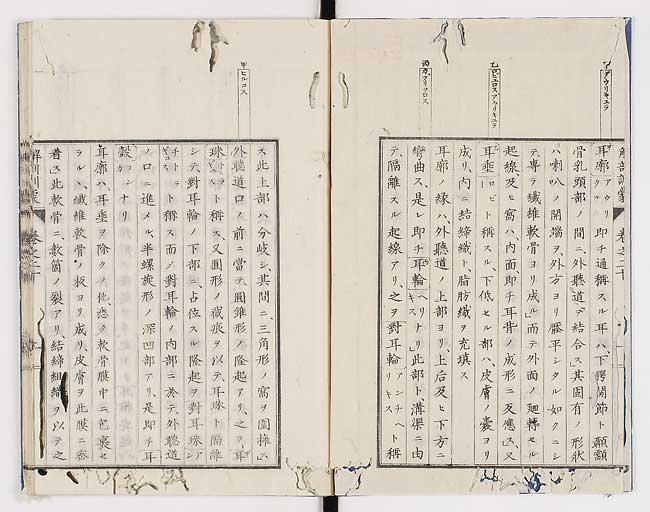 耳廓アウリクル即チ通稱スル耳ハ下腭関節ト顳顬
骨乳頭部ノ間ニ外聽道ヲ結合ス其固有ノ形狀
ハ喇叭ノ開端ヲ外方ヨリ壓平シタル如クニシ
テ專ラ纖維軟骨ヨリ成ル而テ外面ノ廻轉セル
起線及ヒ窩ハ内面即チ耳背ノ成形ニ反應ス又
耳垂ロビト稱スル下低セル部ハ皮膚ノ嚢ヨリ
成リ内ニ結締織ト脂肪織ヲ充填ス
耳廓ノ緣ハ外聽道ノ上部ヨリ上后及ヒ下方ニ
彎曲ス是レ即チ耳輪ヘリキスナリ此部ト溝渠ニ由
テ隔離スル起線アリ之ヲ對耳輪アンチヘリキスト稱
ス此上部ハ分岐シ其間ニ三角形ノ窩ヲ圍擁ス
外聽道口ノ前ニ當テ圓錐形ノ隆起アリ之ヲ耳
珠ト稱ス又圓形ノ截痕ヲ以テ耳珠ト隔離
シテ對耳輪ノ下部ニ占位スル隆起ヲ對耳珠アン
ト稱ス而シ對耳輪ノ内部ニ於テ外聽道
ノ口ニ進メル半螺旋形ノ深凹部アリ是即チ耳
殼ナリ
耳廓ハ耳垂ヲ除クノ他悉ク軟骨膜中ニ包裹セ
ラル纖維軟骨ノ板ヨリ成リ皮膚ヲ此膜ニ密
着ス此軟骨ニ數箇ノ裂アリ結締組織ヲ以テ之
甲 ヒルコス
解剖訓蒙 卷之二十